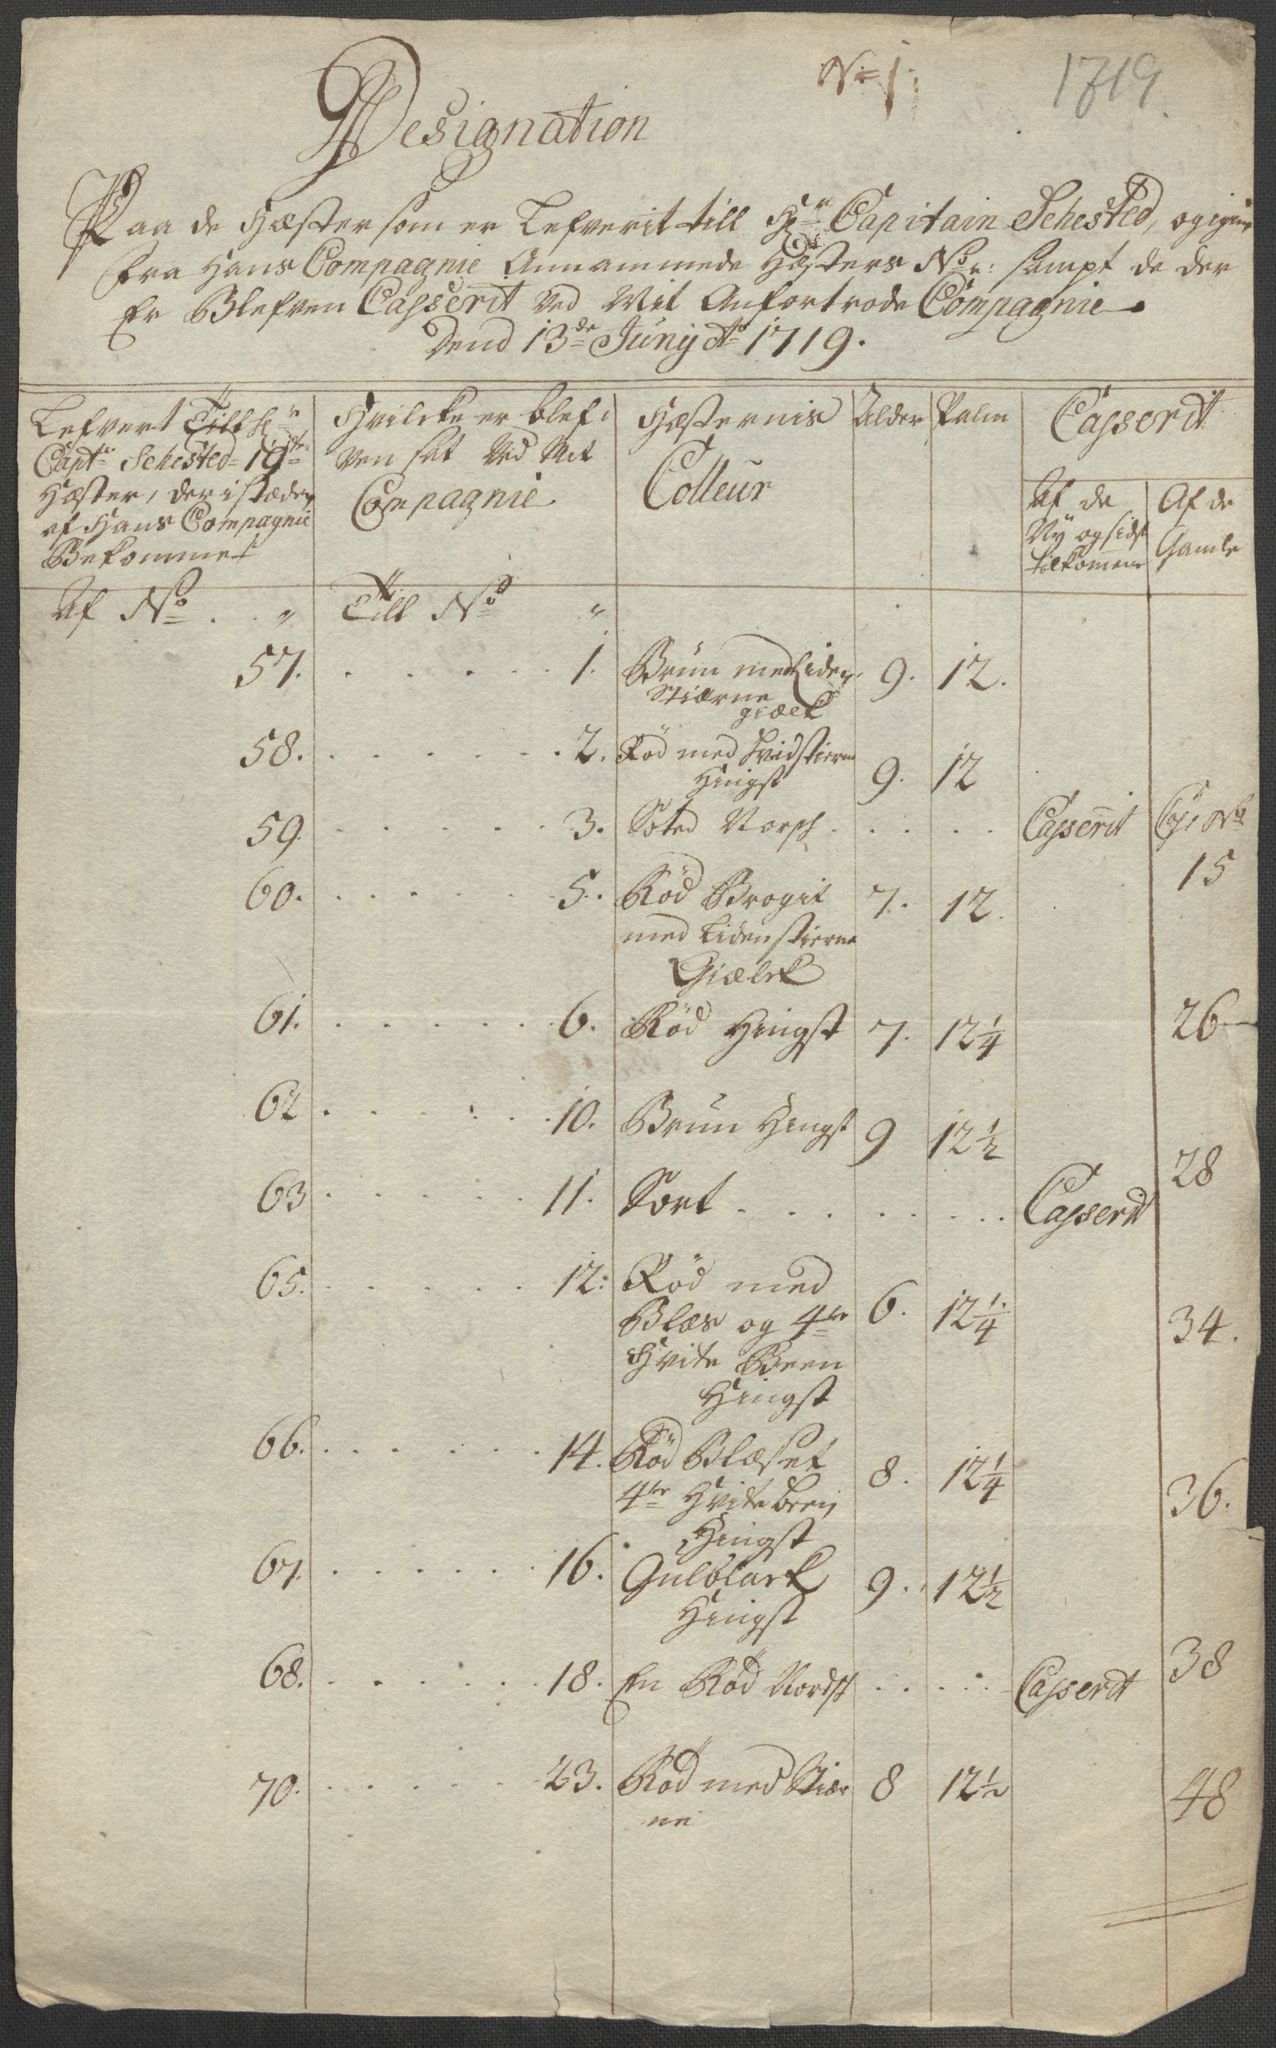 No 1.
1719
Designation
Paa de Hæster som er Lefverit till Hr Capitain Sehested, og igien
fra Hans Compagnie Annammede Hæsters No: sampt de der
Er Blefven Casserit ved Mit Anfortrode Compagnie
Dend 13de Junij Ao 1719.
Lefvert Till Hr
Capt: Sehested 19
Hæster, der i stæden
af Hans Compagnie
Bekommet
Hvilcke er blef
ven sat Ved Mit
Compagnie
Hæsternis
Colleur
Alder
Palm
Casserit
Af de
Ny og sidst
tilkomene
Af de
Gamle
Af No . . " Till No "
57. . . . . . . 1. Brun med Liden 9. 12.
Stiærne
giælk
58. . . . . . . 2. Rød med Hvid stierne 9. 12
Hingst
59 . . . . . . 3. Sted Norsk . . . . Casserit Cass No
60. . . . . . 5. Rød Brogit 7. 12. 15
med Liden stierne
Giælck
61. . . . . . . 6. Rød Hingst 7. 12 1/4 26
62 . . . . . . 10. Brun Hingst 9 12 1/2 28
63 . . . . . . 11. Sort . . . . . . . Casserit
65. . . . . . 12: Rød med 6. 12 1/4 34.
Blæs og 4re
Hvite Been
Hingst
66. . . . . . . 14. Rød Blæset 8. 12 1/4 36.
4re Hvite been
Hingst
67. . . . . . 16. Gulblack 9. 12 1/2
Hingst
68. . . . . . . 18. En Rød Nordsk . . . . . Casserit 38
70. . . . . . 23. Rød med Stiær 8 12 1/2 48
ne